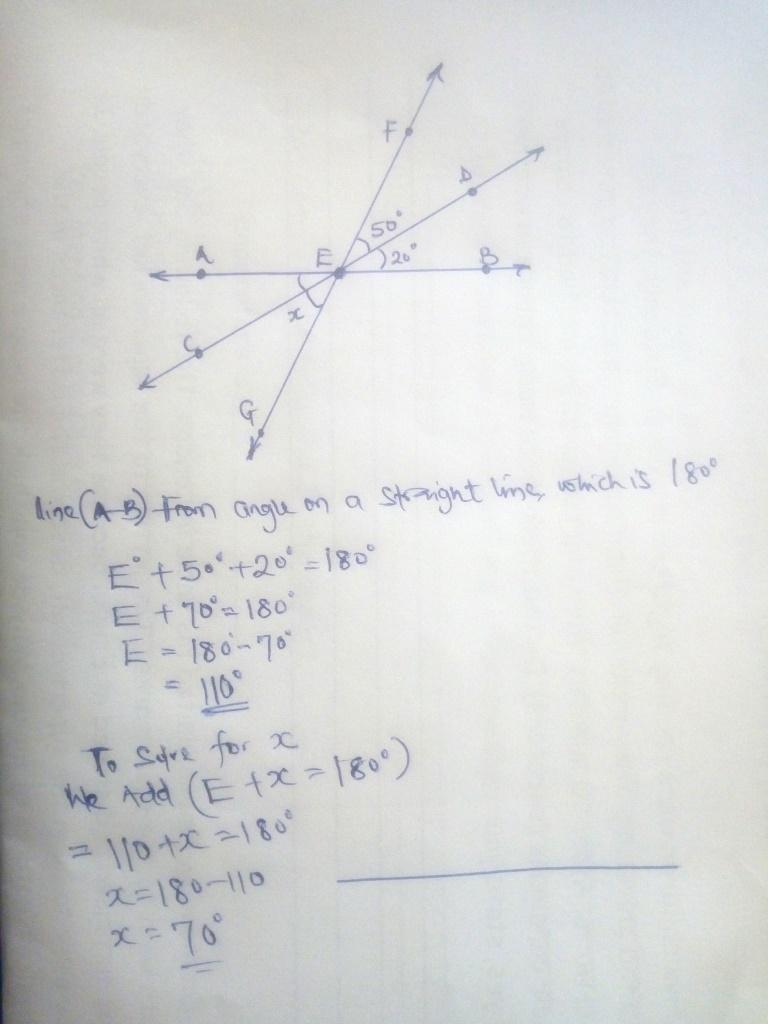 F
D
50°
A
E
20°
B
x
C
G
line (A-B) from angle on a straight line, which is 180°
E° + 50° + 20° = 180°
E + 70° = 180°
E = 180° - 70°
= 110°
To Solve for x
We Add (E + x = 180°)
= 110 + x = 180°
x = 180 - 110
x = 70°